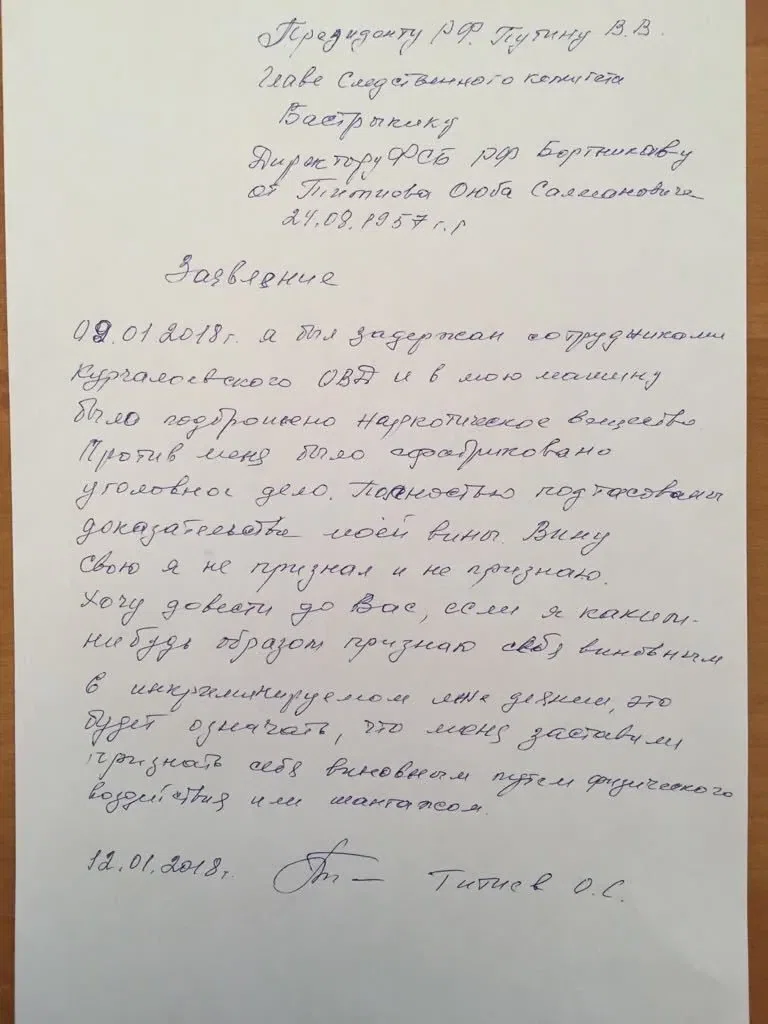 Президенту РФ. Путину В.В.
Главе Следственного комитета
Бастрыкину
Директору ФСБ РФ Бортникаву
от Титиева Оюба Салмановича
24.08.1957 г.р
Заявление
09.01.2018г. я был задержан сотрудниками
Курчалоевского ОВД и в мою машину
было подброшено наркотическое вещество.
Против меня было сфабриковано
уголовное дело. Полностью подтасованы
доказательства моей вины. Вину
свою я не признал и не признаю.
Хочу довести до Вас, если я каким-
нибудь образом признаю себя виновным
в инкриминируемом мне деянии, это
будет означать, что меня заставили
признать себя виновным путем физического
воздействия или шантажом.
12.01.2018г. Титиев О.С.